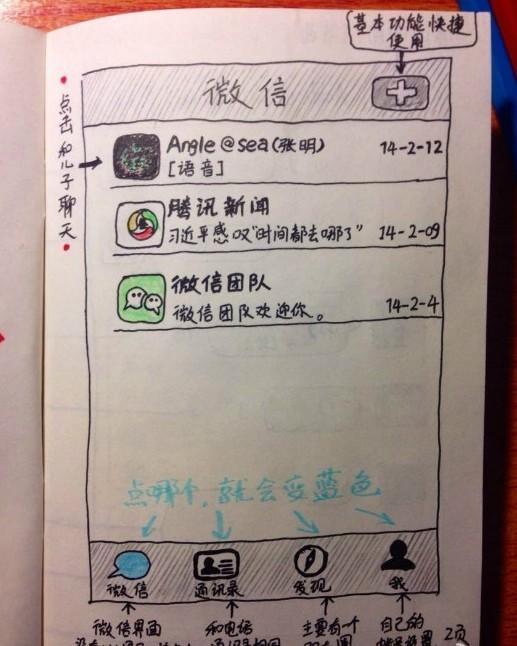 基本功能快捷
使用
微信
点击和儿子聊天
Angle@sea(张明)
14-2-12
[语音]
腾讯新闻
习近平感叹"时间都去哪了"
14-2-09
微信团队
微信团队欢迎你。
14-2-4
点哪个,就会变蓝色
微信
通讯录
发现
我
微信界面
和电话
主要有一个
自己的
2页